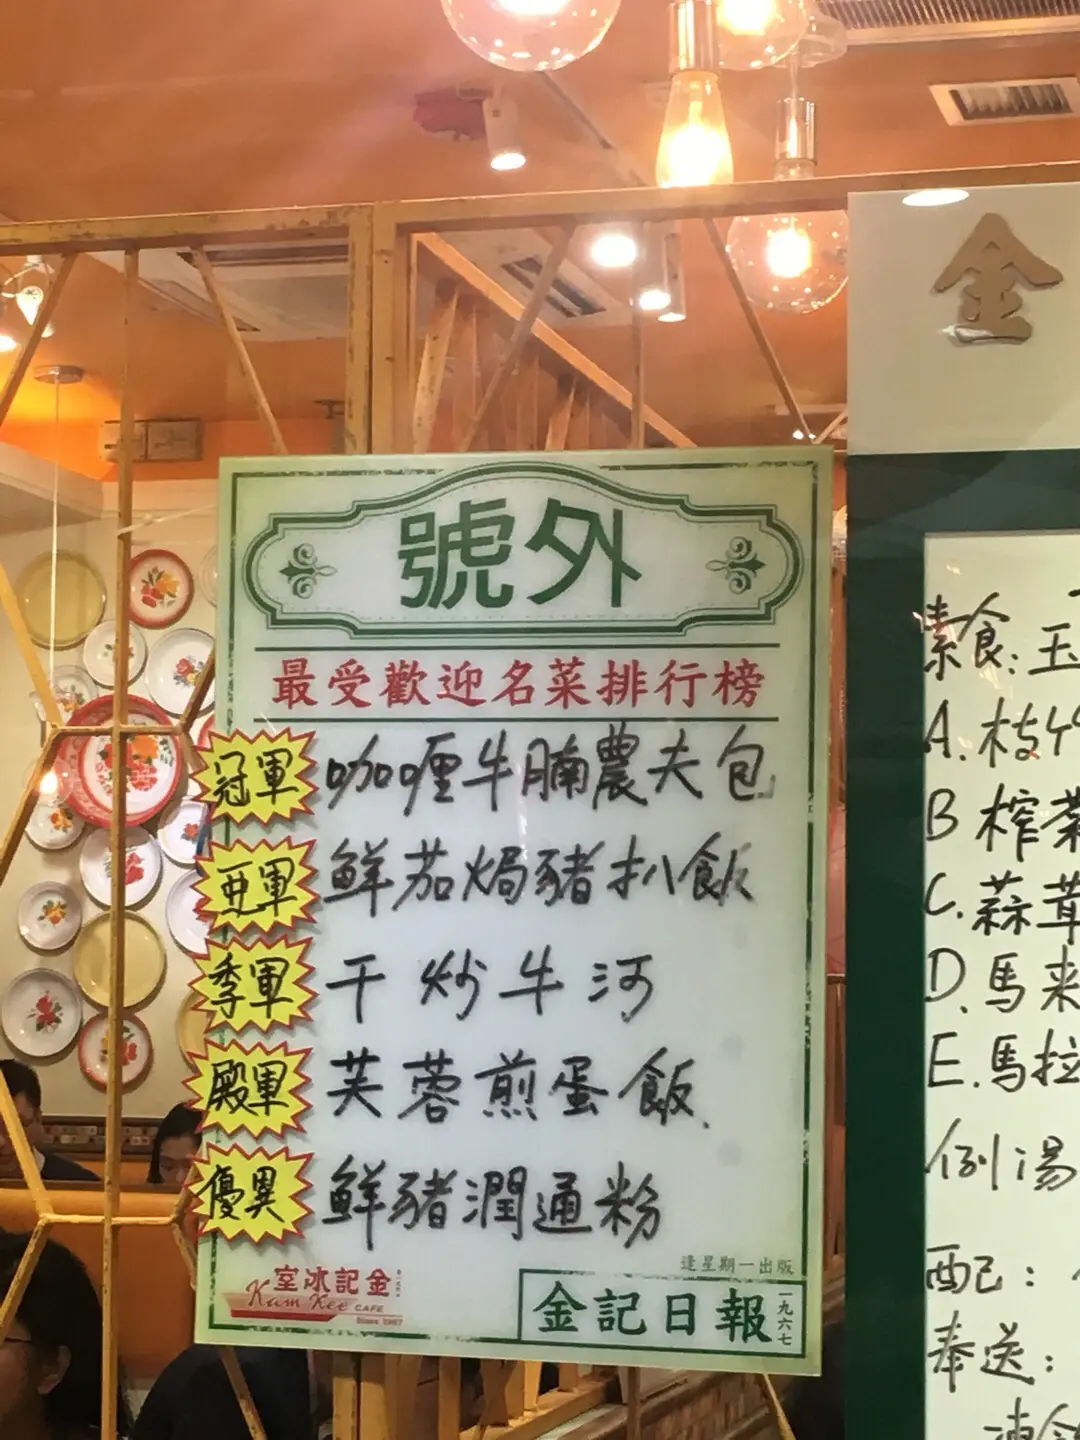 金
號外
最受歡迎名菜排行榜
冠軍 咖喱牛腩農夫包
亞軍 鮮茄焗豬扒飯
季軍 干炒牛河
殿軍 芙蓉煎蛋飯
優異 鮮豬潤通粉
逢星期一出版
室冰記金
Kam Kee CAFE
Since 1967
金記日報
一九六七
素食:玉
A.枝竹
B榨菜
C.蒜茸
D.馬来
E.馬拉
例湯
配:
奉送:
凍